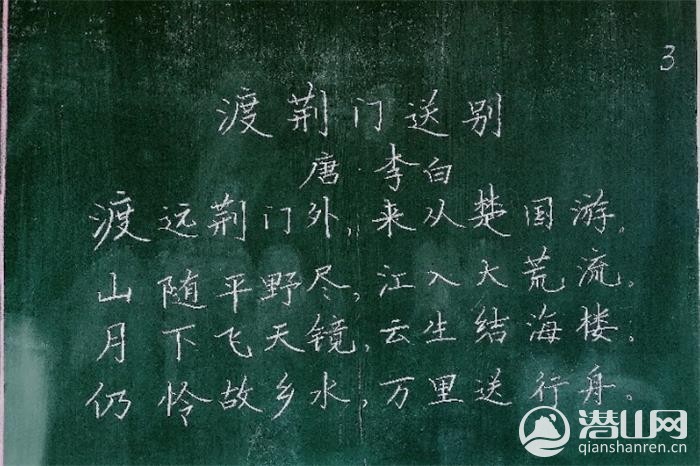 3
渡荆门送别
唐·李白
渡远荆门外,来从楚国游。
山随平野尽,江入大荒流。
月下飞天镜,云生结海楼。
仍怜故乡水,万里送行舟。
潜山网
qianshanren.cn